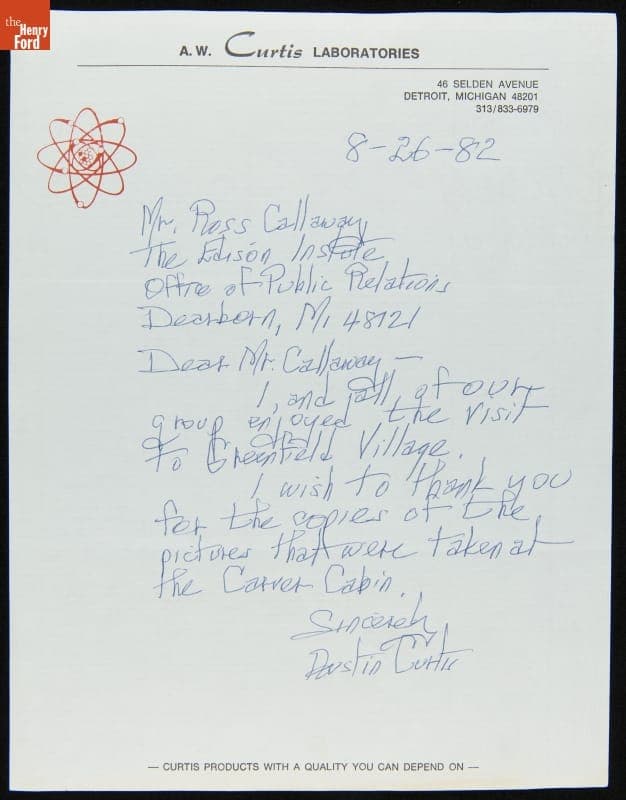 the
Henry
Ford
A. W. Curtis LABORATORIES
46 SELDEN AVENUE
DETROIT, MICHIGAN 48201
313/833-6979
8-26-82
Mr. Ross Callaway
The Edison Instute
Office of Public Relations
Dearborn, Mi 48121
Dear Mr. Callaway —
I, and all of our
group enjoyed the visit
To Greenfield Village.
I wish to thank you
for the copies of the
pictures that were taken at
the Carver Cabin.
Sincerely
Austin Curtis
— CURTIS PRODUCTS WITH A QUALITY YOU CAN DEPEND ON —